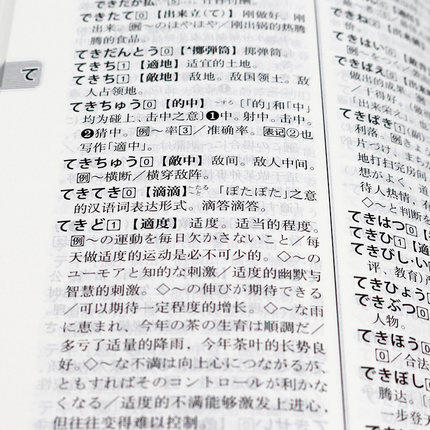 てきたて[0]【出来立(て)】刚做好。刚
出来。例〜のほやほや／刚出锅的热腾
腾的食品。
てきだんとう[0]【*擲弾筒】掷弹筒。
てきち[1]【適地】适宜的土地。
てきち[1]【敵地】敌地。敌国领土。敌
人占领地。
てきちゅう[0]【的中】「「的」和「中」
均为碰上、击中之意」❶中。射中。击中。
❷猜中。例〜率③／准确率。表记②也
写作「適中」。
てきちゅう[0]【敵中】敌间。敌人中间。
例〜横断／横穿敌阵。
てきてき[0]【滴滴】「ぽたぽた」之意
的汉语词表达形式。滴答滴答。
てきど[1]【適度】适度。适当的程度。
例〜の運動を毎日欠かさないこと／每
天做适度的运动是必不可少的。◇〜の
ユーモアと知的な刺激／适度的幽默与
智慧的刺激。◇〜の伸びが期待できる
／可以期待一定程度的增长。◇〜な雨
に恵まれ、今年の茶の生育は順調だ／
多亏了适量的降雨，今年茶叶的长势良
好。◇〜な不満は向上心につながるが、
ともすればそのコントロールが利かな
くなる／适度的不满能够激发上进心，
但往往变得难以控制
て
できね
てきはい
できばえ[0]【出
做出的成果
／干得好。
てきぱき[1](副
利落。例〜
片づけ・まち
地打扫完房间
想がよく、道
待人热情，有
◇〜と判断を
てきはつ[0]【
てきひ[1]【適
てきびし・い
评、教育)严
てきひょう[
できぶつ[0]
人物。
てきほう[
[0]／合法
できぼし[
腾达。
一步登天